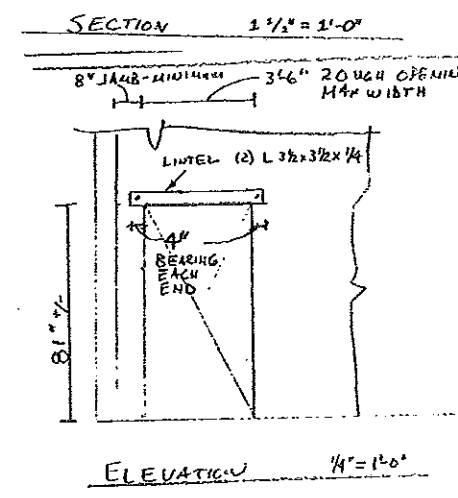 SECTION 1 1/2" = 1'-0"
8" JAMB-MINIMUM 3'-6" ROUGH OPENING
MAX WIDTH
LINTEL (2) L 3½x3½x¼
4"
BEARING
EACH
END
81" +/-
ELEVATION ¼"=1'-0"